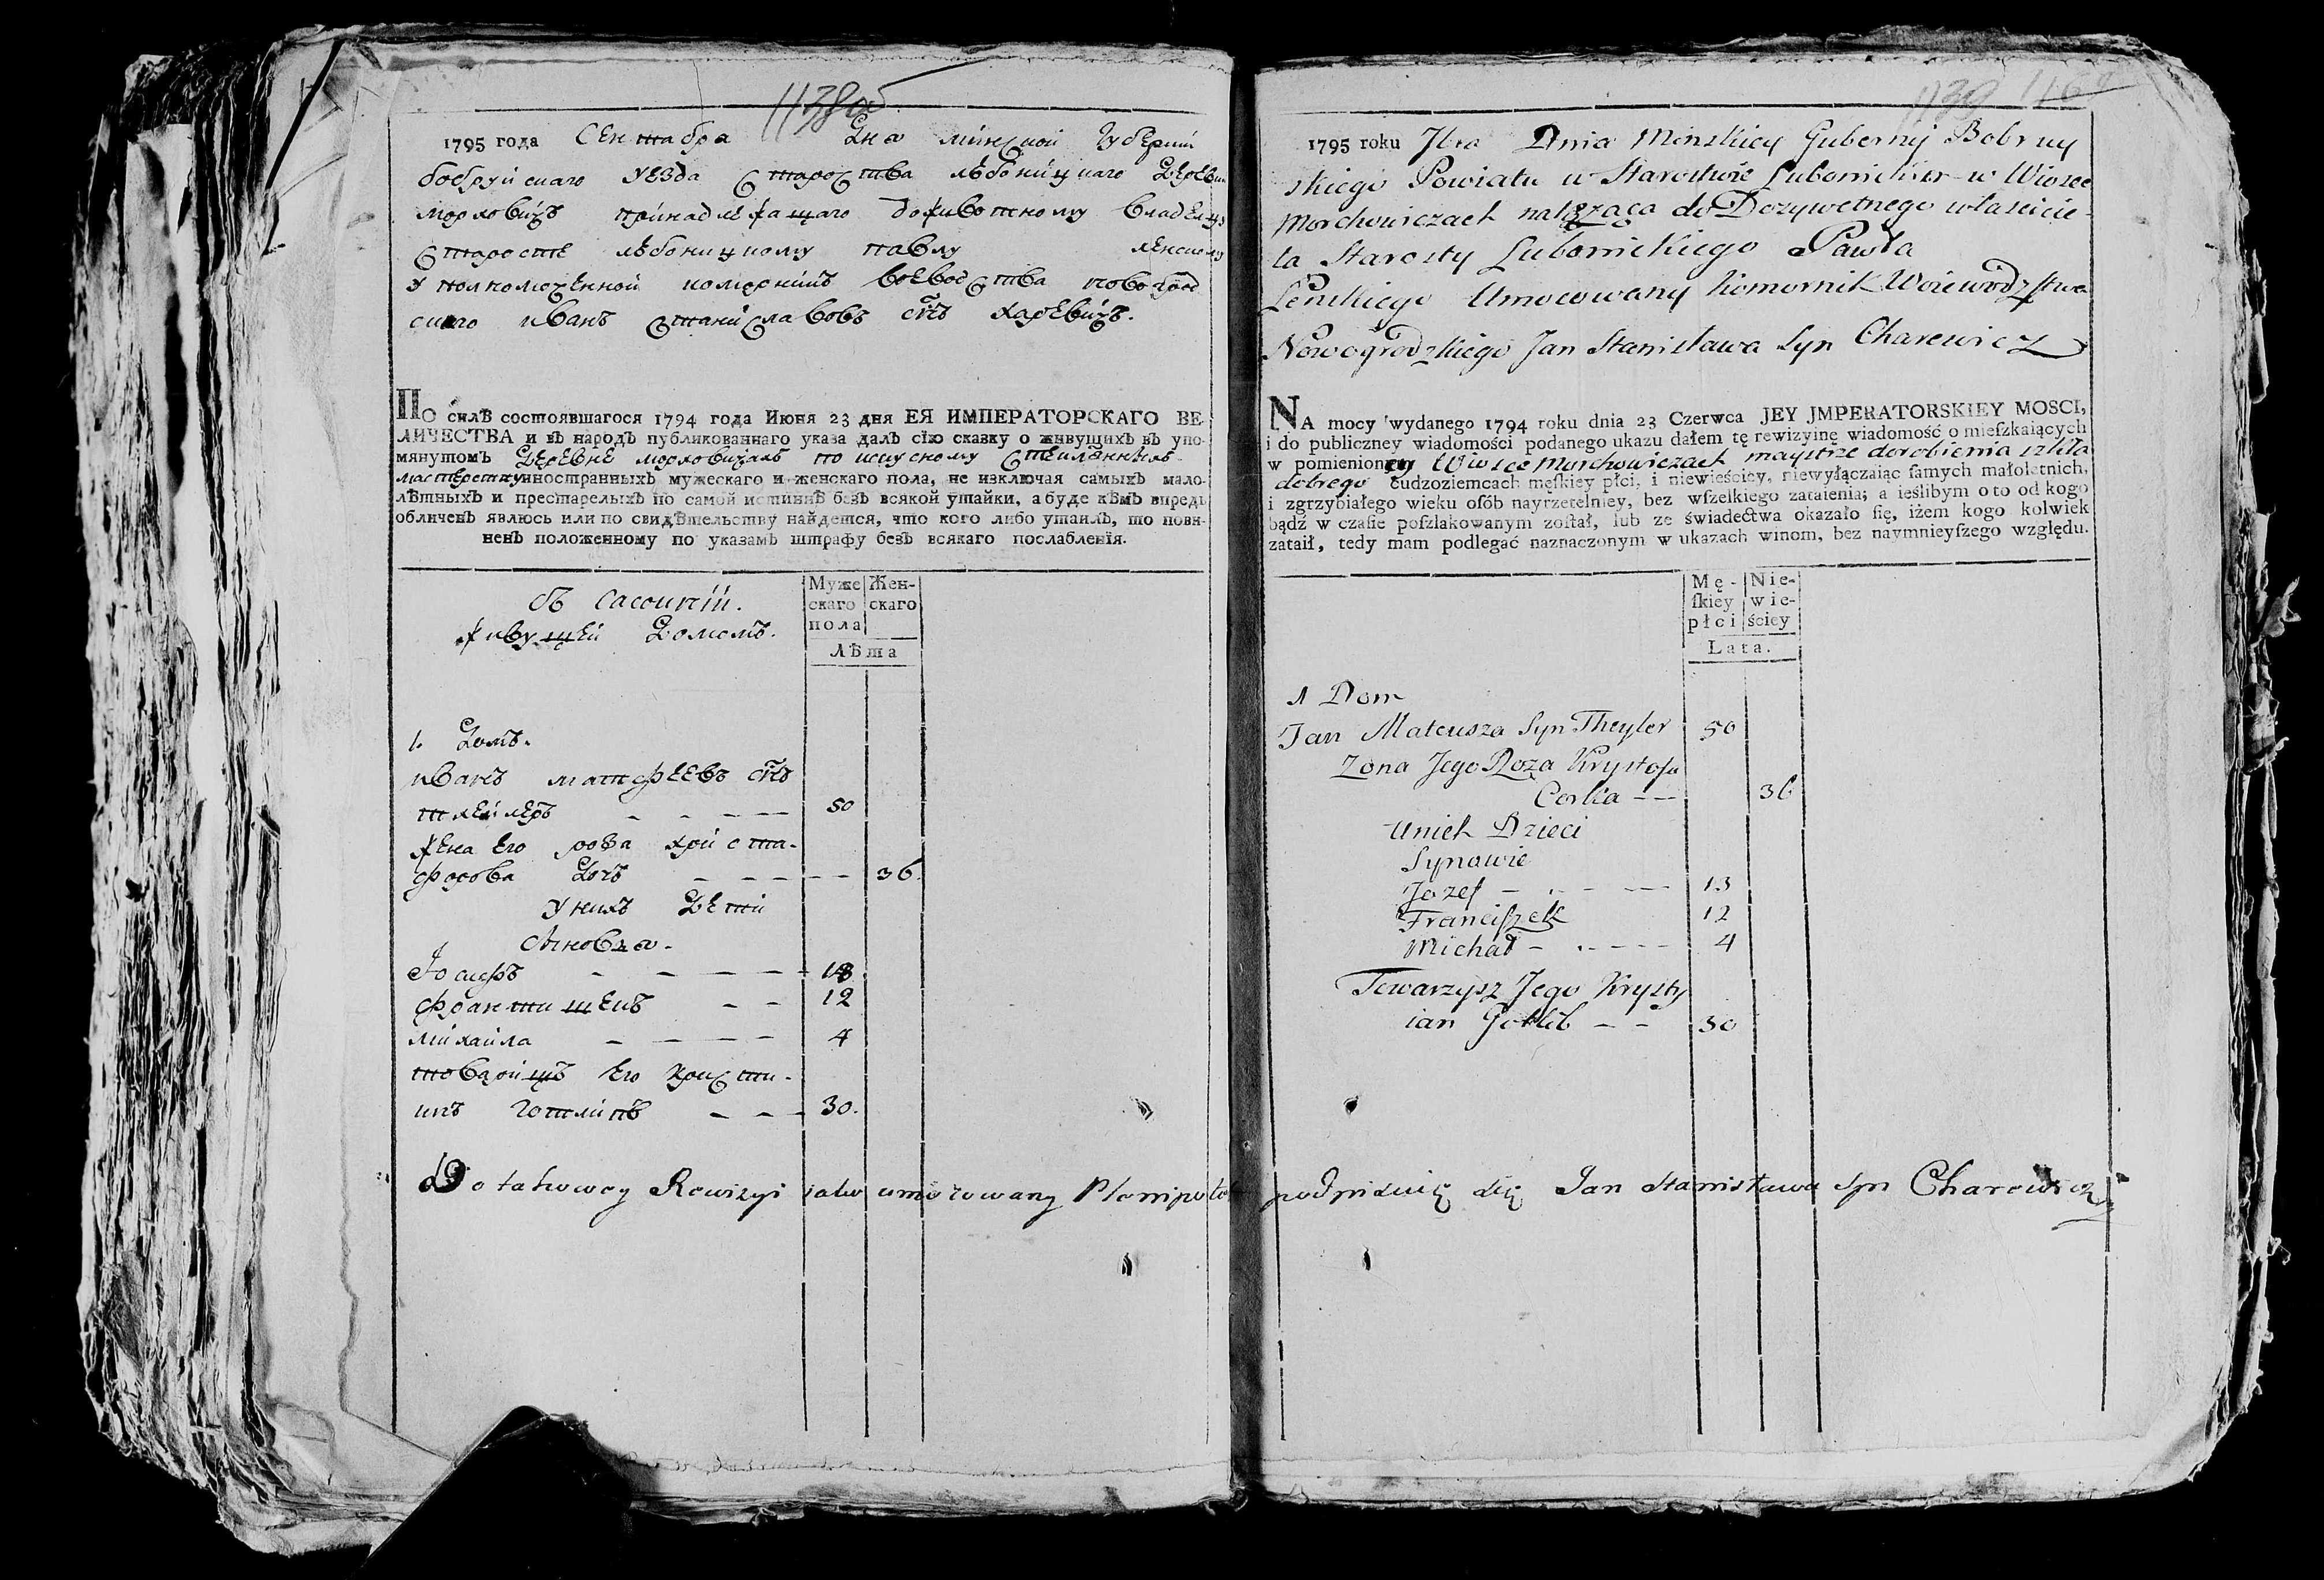 1138об
1795 года Сентабра Дна Минской Губернїи
бобруйскаго уезда староства лебоницкаго деревни
морховичъ принадлежащаго дожывотному владелцу
старосте лебоницкому павлу ленскому
уполномоченной коморникъ воеводства новогрод
скаго иванъ станиславовъ снъ харевичъ.
ПО силѢ состоявшагося 1794 года Июня 23 дня ЕЯ ИМПЕРАТОРСКАГО ВЕ-
ЛИЧЕСТВА и въ народъ публикованнаго указа далъ сїю сказку о живущихъ въ упо-
мянутомъ деревне морховичахъ по искусному стеклянныхъ
мастерству иностранныхъ мужескаго и женскаго пола, не изключая самыхъ мало-
лѣтныхъ и престарелыхъ по самой истиннѣ безъ всякой утайки, а буде кѣмъ впредь
обличенъ явлюсь или по свидѣтельству найдется, что кого либо утаилъ, то пови-
ненъ положенному по указамъ штрафу безъ всякаго послабленїя.
живущей домомъ.
Муже
скаго
пола
Жен-
скаго
Лѣта
1. Домъ.
иванъ матфеевъ снъ
тхейлеръ - - - - 50
жена его роза криста-
форова дочъ - - - - 36.
у нихъ дети
сыновья.
Иосифъ - - - - 13
францишекъ - - 12
михайла - - - - 4
товарищъ его кристи-
инъ готлипъ - - - 30.
1139 116
1795 roku 7bra Dnia Minskiey Gubernij Bobruy
skiego Powiatu w Starostwie Lubonickim w Wiosce
Morchowiczach nalezaca do Dozywotnego właścicie-
la Starosty Lubonickiego Pawła
Lenskiego Umocowany Komornik Woiewodztwa
Nowogrodzkiego Jan Stanisława Syn Charewicz
NA mocy wydanego 1794 roku dnia 23 Czerwca JEY JMPERATORSKIEY MOSCI,
i do publiczney wiadomości podanego ukazu dałem tę rewizyinę wiadomość o mieſzkaiących
w pomienioney Wiosce Morchowiczach maystrze dorobienia szkła
dobrego cudzoziemcach męſkiey płci, i niewieściey, niewyłączaiąc ſamych małoletnich,
i zgrzybiałego wieku osób nayrzetelniey, bez wſzelkiego zataienia; a ieślibym o to od kogo
bądź w czaſie poſzlakowanym zoſtał, lub ze świadectwa okazało ſię, iżem kogo kolwiek
zataił, tedy mam podlegać naznaczonym w ukazach winom, bez naymnieyſzego względu.
Mę-
ſkiey
płci
Nie-
wie-
ściey
Lata.
1 Dom
Jan Mateusza Syn Theyler 50
Zona Jego Roza Krystofa
Corka - - 36
Unich Dzieci
Synowie
Jozef - - - - 13
Franciszek 12
Michał - - - - 4
Towarzysz Jego Krysty
ian Gotlib - - 30
Do takowey Rewizyi iako umocowany Plenipotent podpisuię się Jan Stanisława syn Charewicz